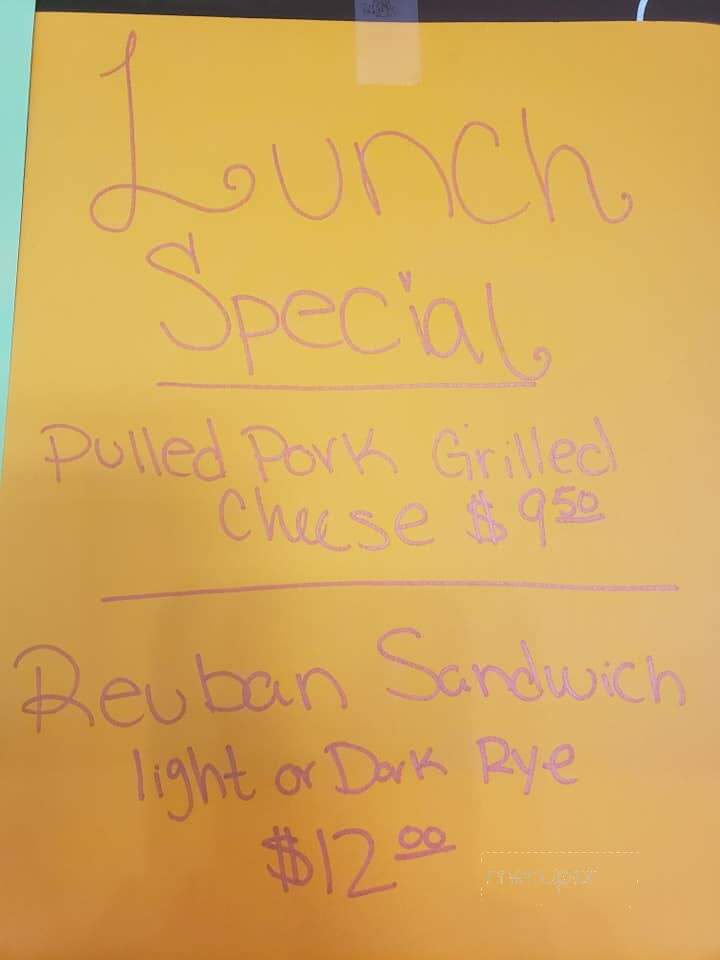 Lunch
Special
Pulled Pork Grilled
Cheese $9.50
Reuban Sandwich
light or Dark Rye
$12.00
menupix